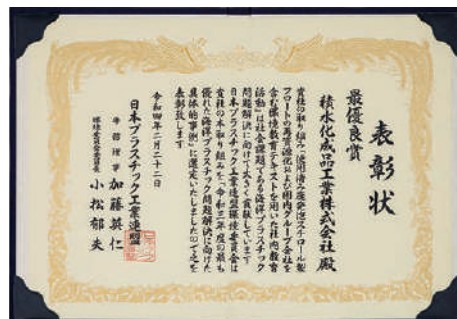 表彰状
最優良賞
積水化成品工業株式会社 殿
貴社の取り組み「使用済み廃発泡スチロール製
フロートの再資源化および国内グループ会社を
含む環境教育テキストを用いた社内教育
活動」は社会課題である海洋プラスチック
問題解決に向けて大きく貢献しています
日本プラスチック工業連盟環境委員会は
貴社の本取り組みを、令和三年度の最も
優れた海洋プラスチック問題解決に向けた
具体的事例」に選定いたしましたので之を
表彰致します
令和四年二月二十二日
日本プラスチック工業連盟
専務理事 加藤英仁
環境委員会委員長 小松郁夫